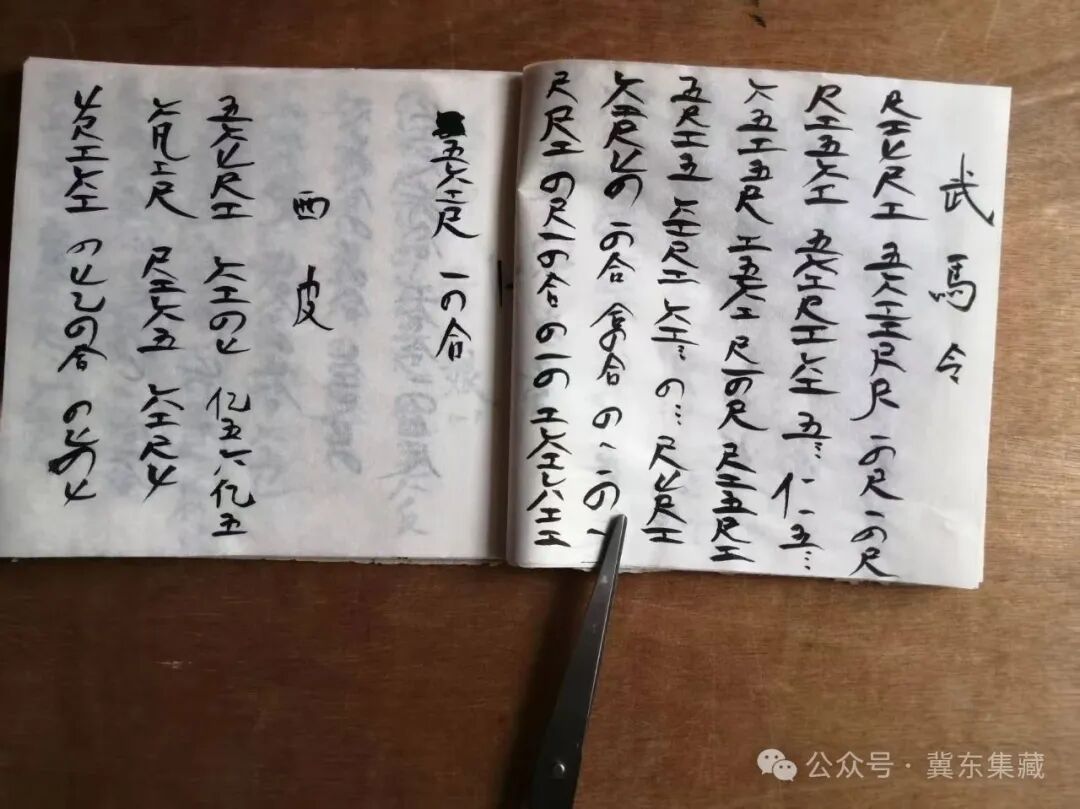 武馬令
尺工尺工 五六工三尺尺 一の尺 一の尺
尺工五六工 五六工尺工六工 五ミ 仁一五ミ
六五工五尺 工五六工 尺一の尺 尺工五尺工
五尺工五 六工尺工 六工ミ の ミ 尺上尺工
六工尺上の 一の合 合の合 の、一の一
尺尺工 の尺一の合 の一の 工六工六工工
五六工尺 一の合
西皮
五六上尺工 六工の上 亿五六亿五
六凡工尺 尺工六五 六工尺上
上尺工六工 の上乙の合 の
公众号·冀东集藏